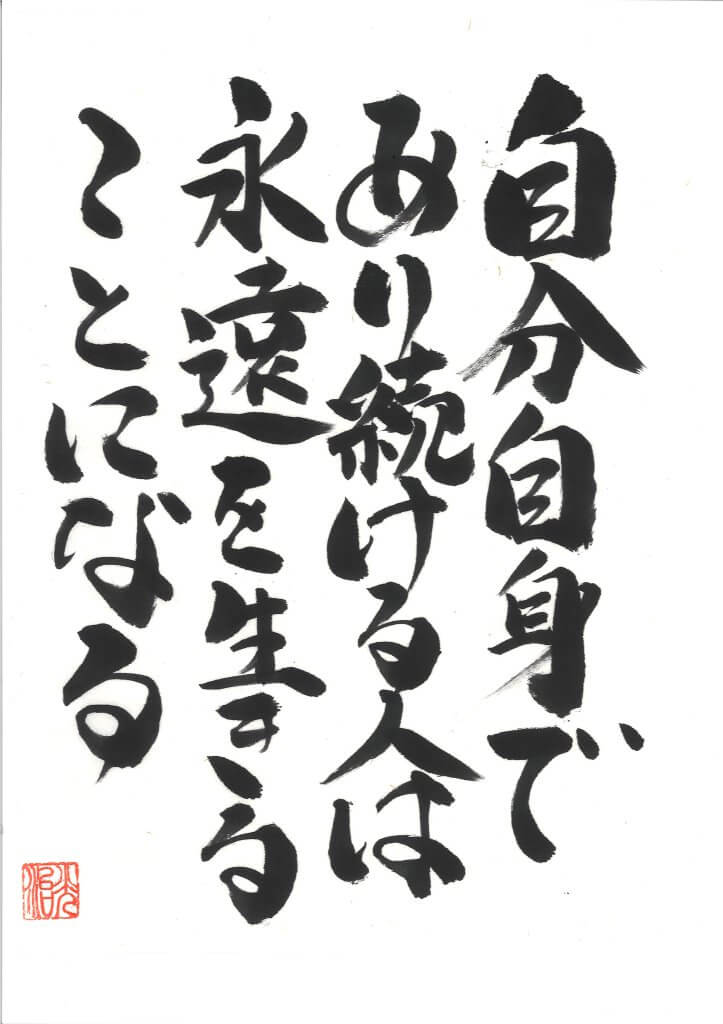 自分自身で
あり続ける人は
永遠を生きる
ことになる